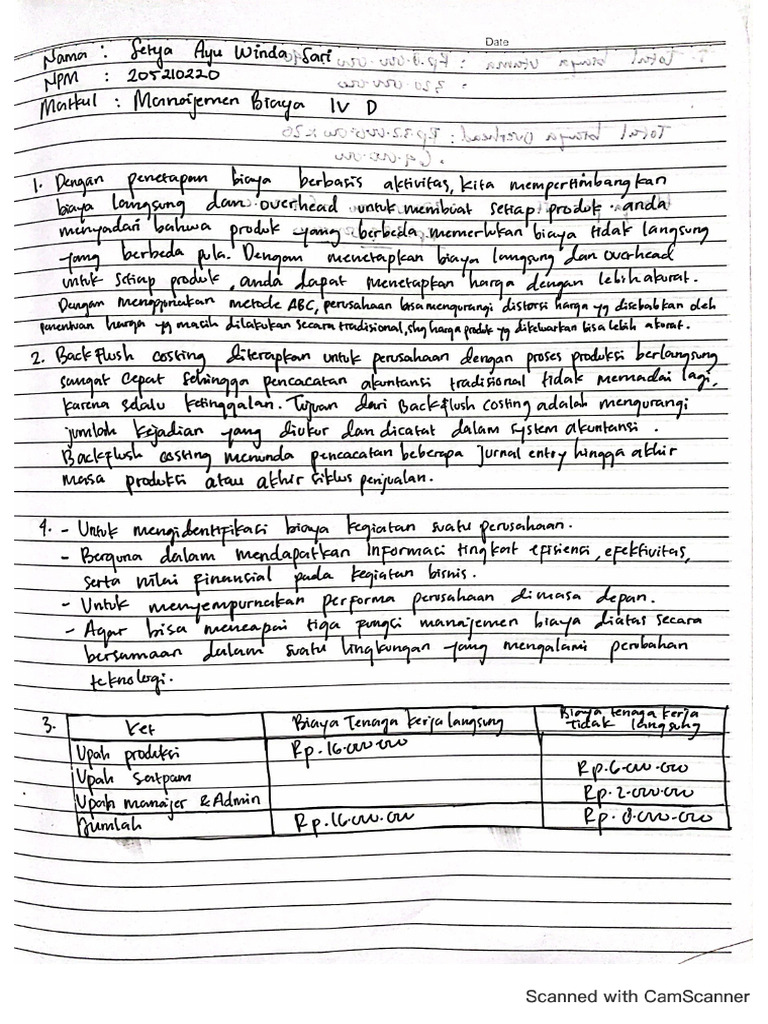 Date
Nama : Setya Ayu Winda Sari
NPM : 205210220
Matkul : Manajemen Biaya IV D
1. Dengan penetapan biaya berbasis aktivitas, kita mempertimbangkan
biaya langsung dan overhead untuk membuat setiap produk. anda
menyadari bahwa produk yang berbeda memerlukan biaya tidak langsung
yang berbeda pula. Dengan menetapkan biaya langsung dan overhead
untuk setiap produk, anda dapat menetapkan harga dengan lebih akurat.
Dengan menggunakan metode ABC, perusahaan bisa mengurangi distorsi harga yg disebabkan oleh
penentuan harga yg masih dilakukan secara tradisional, shg harga produk yg dikeluarkan bisa lebih akurat.
2. Backflush costing diterapkan untuk perusahaan dengan proses produksi berlangsung
sangat cepat sehingga pencacatan akuntansi tradisional tidak memadai lagi,
karena selalu ketinggalan. Tujuan dari Backflush costing adalah mengurangi
jumlah kejadian yang diukur dan dicatat dalam system akuntansi.
Backflush costing menunda pencacatan beberapa jurnal entry hingga akhir
masa produksi atau akhir siklus penjualan.
4. - Untuk mengidentifikasi biaya kegiatan suatu perusahaan.
- Berguna dalam mendapatkan informasi tingkat efisiensi, efektivitas,
serta nilai financial pada kegiatan bisnis.
- Untuk menyempurnakan performa perusahaan dimasa depan.
- Agar bisa mencapai tiga fungsi manajemen biaya diatas secara
bersamaan dalam suatu lingkungan yang mengalami perubahan
teknologi.
3. Ket Biaya Tenaga Kerja langsung Biaya tenaga kerja tidak langsung
Upah produksi Rp. 16.000.000
Upah satpam Rp. 6.000.000
Upah manajer & Admin Rp. 2.000.000
Jumlah Rp. 16.000.000 Rp. 8.000.000
Scanned with CamScanner